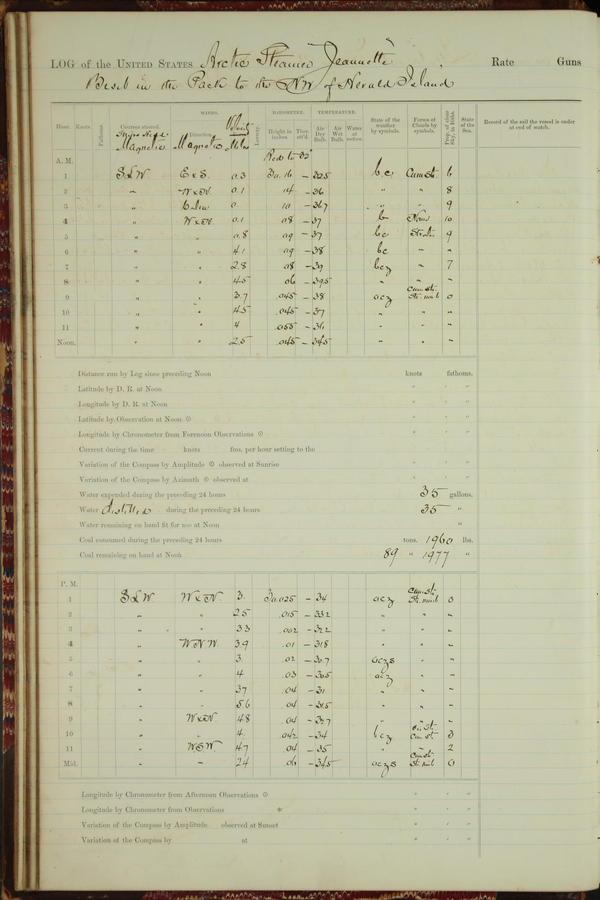 LOG of the UNITED STATES Arctic Steamer Jeannette Rate Guns
Beset in the Pack to the NW of Herald Island
WINDS. BAROMETER. TEMPERATURE.
Hour. Knots. Fathoms. Courses steered. Direction. Leeway. Height in inches Ther. att'd. Air Dry Bulb. Air Wet Bulb. Water at surface. State of the weather by symbols. Forms of Clouds by symbols. State of the Sea. Record of the sail the vessel is under at end of watch.
Magnetic Magnetic Miles
A. M. Red to 32°
1 S&W E&S. 0.3 30.16 - bc Cum St 6
2 " 0.1 14 -36 " " 8
3 " Calm 0. 10 -36.7 " " 9
4 " W&N. 0.1 08 -37 b 10
5 " " 0.8 09 -37 bc 9
6 " " 4.1 09 -38 bc " "
7 " " 2.8 08 -39 bcz " 7
8 " " 4.5 06 -39.5 " " "
Cum St.
9 " " 3.7 .045 -38 ocz St. 0
10 " " 4.5 .045 -37 " " "
11 " " 4 .055 -36 " " "
Noon. " " 2.5 .045 -34.5 " " "
Distance run by Log since preceding Noon knots fathoms.
Latitude by D. R. at Noon ° ' "
Longitude by D. R. at Noon ° ' "
Latitude by Observation at Noon ⊙ ° ' "
Longitude by Chronometer from Forenoon Observations ⊙ ° ' "
Current during the time knots fms. per hour setting to the
Variation of the Compass by Amplitude ⊙ observed at Sunrise ° ' "
Variation of the Compass by Azimuth ⊙ observed at ° ' "
Water expended during the preceding 24 hours 35 gallons.
Water distilled during the preceding 24 hours 35 "
Water remaining on hand fit for use at Noon "
Coal consumed during the preceding 24 hours tons. 1960 lbs.
Coal remaining on hand at Noon 89 " 1977 "
P. M. Cum St.
1 S&W W&N. 3. 30.025 -34 ocz St. 0
2 " " 2.5 .015 -33.2 " " "
3 " " 3.3 .002 -32.2 " " "
4 " WNW. 3.9 .01 -31.8 " " "
5 " " 3. .02 -30.7 oczs " "
6 " " 4 .03 -30.5 ocz " "
7 " " 3.7 .04 -31 " " "
8 " " 5.6 .04 -31.5 " " "
9 " W&N 4.8 .04 -32.7 " " "
10 " " 4. .042 -34 bcz Cum St 3
11 " WSW. 4.7 .04 -35 " " 2
Cum St.
Mid. " " 2.4 .06 -34.5 oczs St. 0
Longitude by Chronometer from Afternoon Observations ⊙ ° ' "
Longitude by Chronometer from Observations * ° ' "
Variation of the Compass by Amplitude observed at Sunset ° ' "
Variation of the Compass by at ° ' "